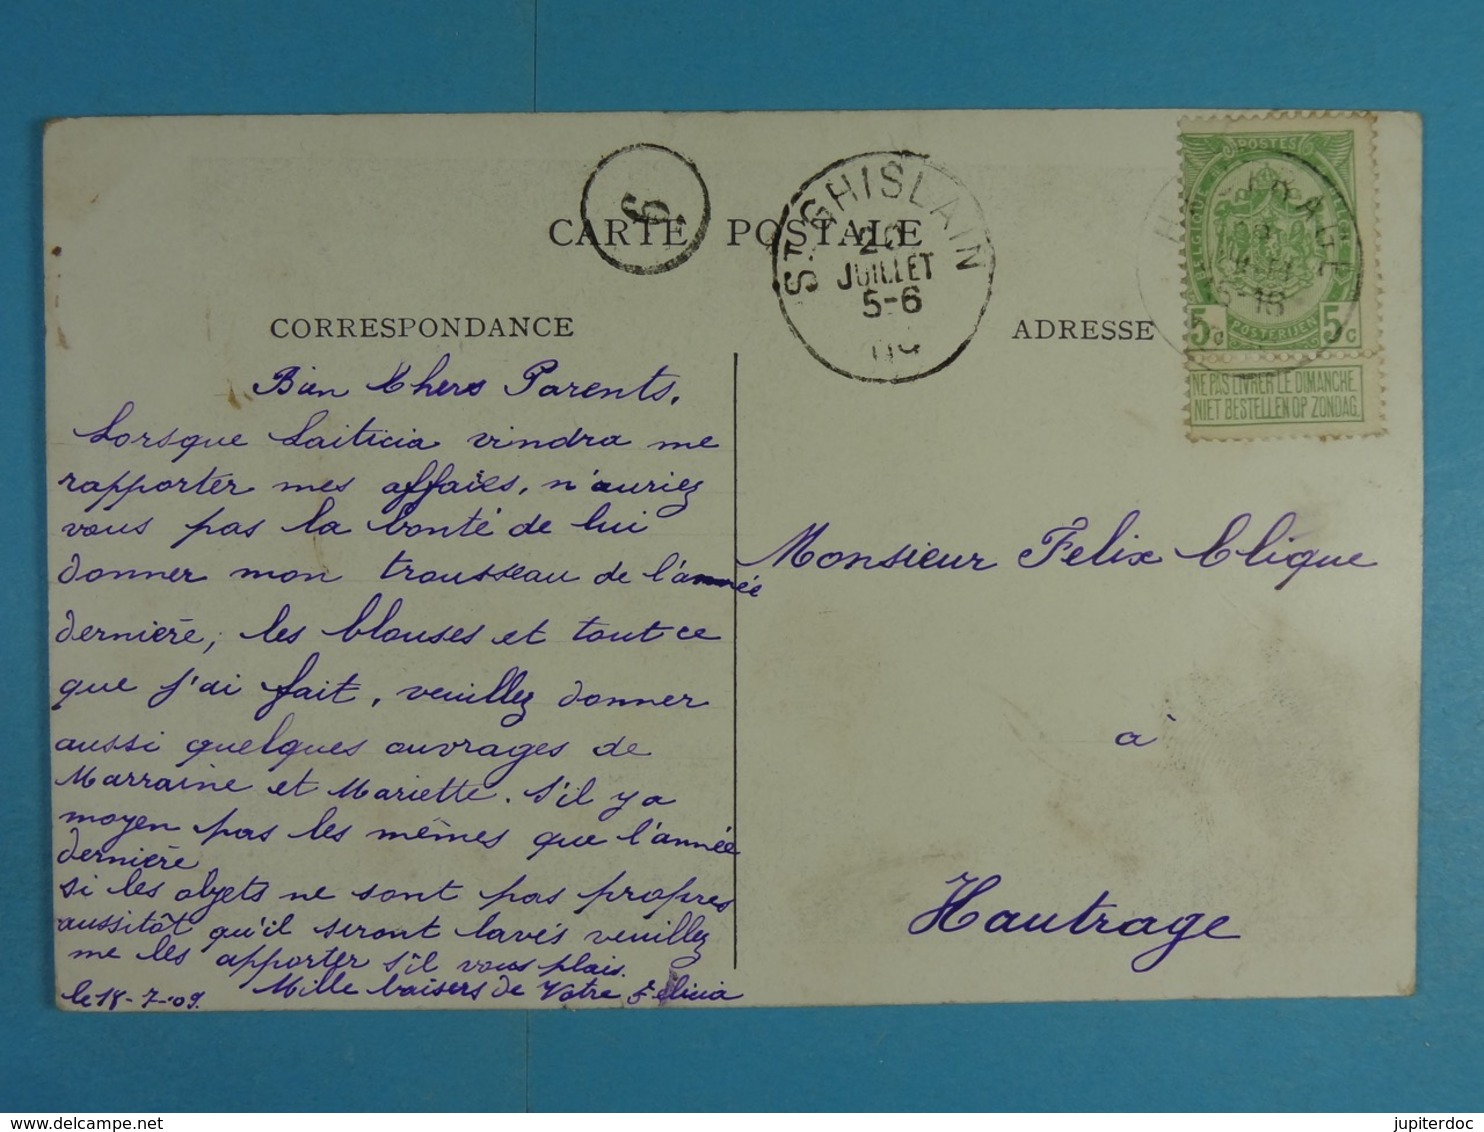 CARTE POSTALE
9
ST GHISLAIN
20
JUILLET
5-6
09
POSTES
BELGIQUE
BELGIE
5c POSTERIJEN 5c
NE PAS LIVRER LE DIMANCHE
NIET BESTELLEN OP ZONDAG.
CORRESPONDANCE
ADRESSE
Bien Chers Parents.
Lorsque Laiticia vindra me
rapporter mes affaies, n'auriez
vous pas la bonté de lui
donner mon trousseau de l'année
dernière, les blouses et tout ce
que j'ai fait, veuillez donner
aussi quelques ouvrages de
Marraine et Mariette. S'il y a
moyen pas les mêmes que l'année
dernière
Si les objets ne sont pas propres
aussitôt qu'il seront lavés veuillez
me les apporter s'il vous plais.
Mille baisers de Votre Felicia
le 18-7-09.
Monsieur Felix Clique
à
Hautrage
jupiterdoc
delcampe.net